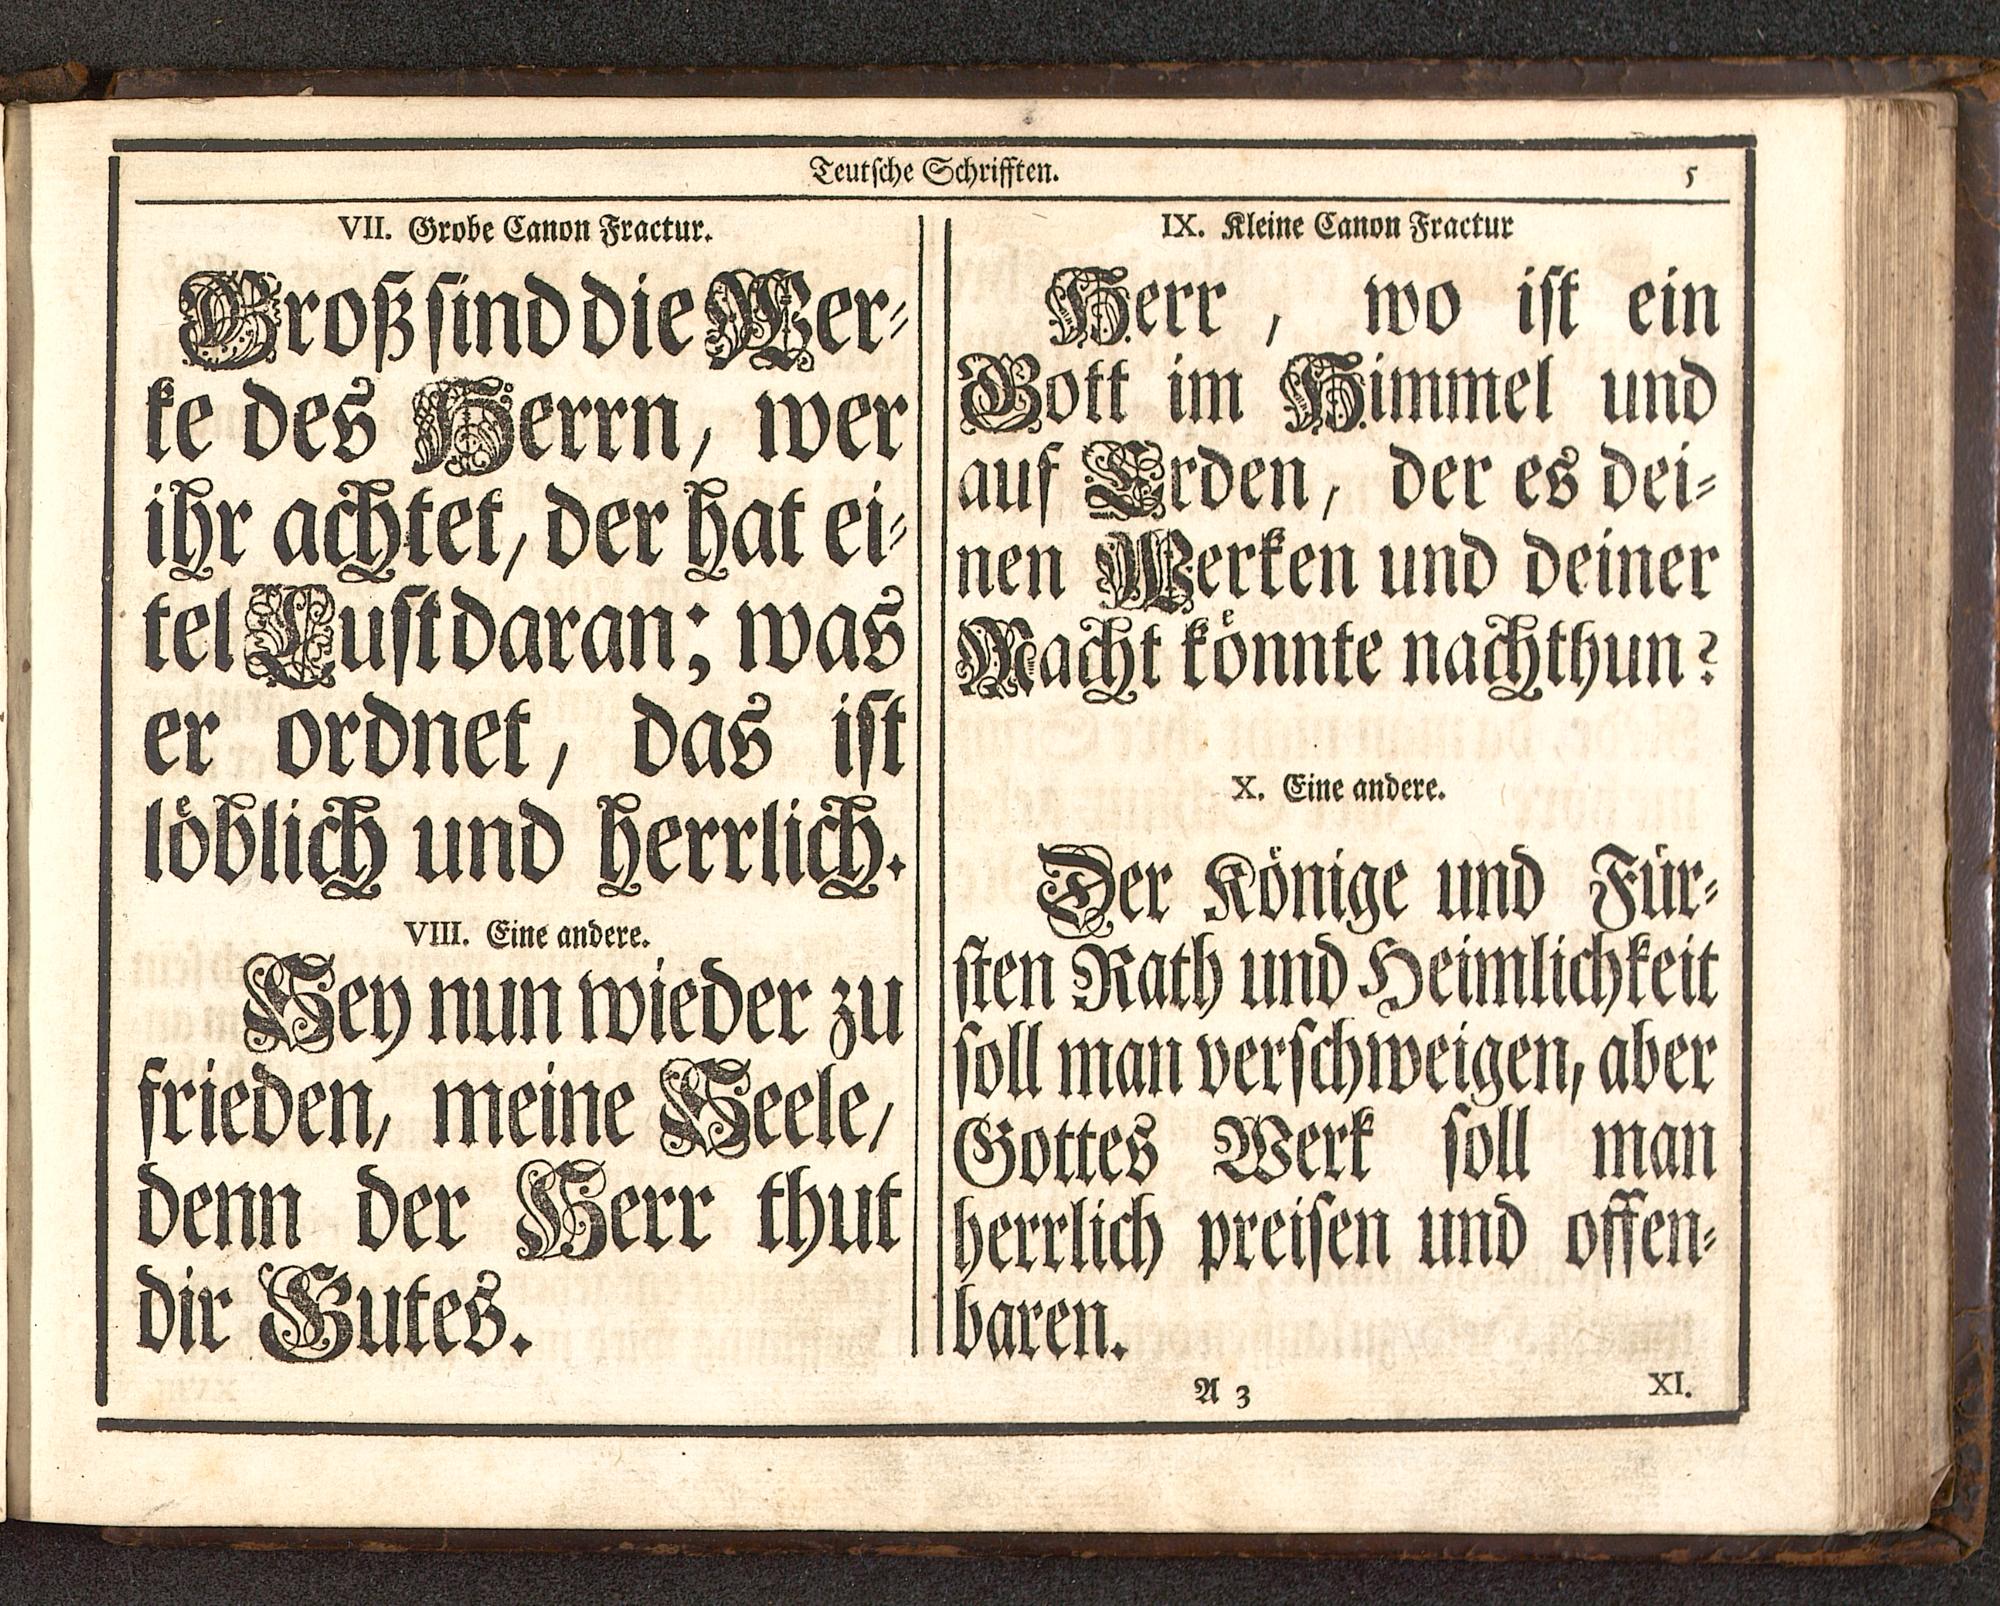 Teutsche Schrifften.
5
VII. Grobe Canon Fractur.
Groß sind die Wer-
ke des Herrn, wer
ihr achtet, der hat ei-
tel Lust daran; was
er ordnet, das ist
löblich und herrlich.
VIII. Eine andere.
Sey nun wieder zu
frieden, meine Seele,
denn der Herr thut
dir Gutes.
IX. Kleine Canon Fractur
Herr, wo ist ein
Gott im Himmel und
auf Erden, der es dei-
nen Werken und deiner
Macht könnte nachthun?
X. Eine andere.
Der Könige und Für-
sten Rath und Heimlichkeit
soll man verschweigen, aber
Gottes Werk soll man
herrlich preisen und offen-
baren.
A 3
XI.